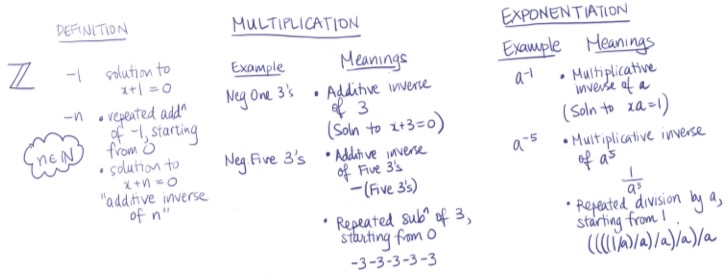 DEFINITION
ℤ
-1 solution to
x+1=0
-n • repeated addⁿ
of -1, starting
from 0
n∈ℕ
• solution to
x+n=0
"additive inverse
of n"
MULTIPLICATION
Example Meanings
Neg One 3's • Additive inverse
of 3
(Soln to x+3=0)
Neg Five 3's • Additive inverse
of Five 3's
-(Five 3's)
• Repeated subⁿ of 3,
starting from 0
-3-3-3-3-3
EXPONENTIATION
Example Meanings
a⁻¹ • Multiplicative
inverse of a
(Soln to xa=1)
a⁻⁵ • Multiplicative inverse
of a⁵
1
a⁵
• Repeated division by a,
starting from 1.
((((1/a)/a)/a)/a)/a